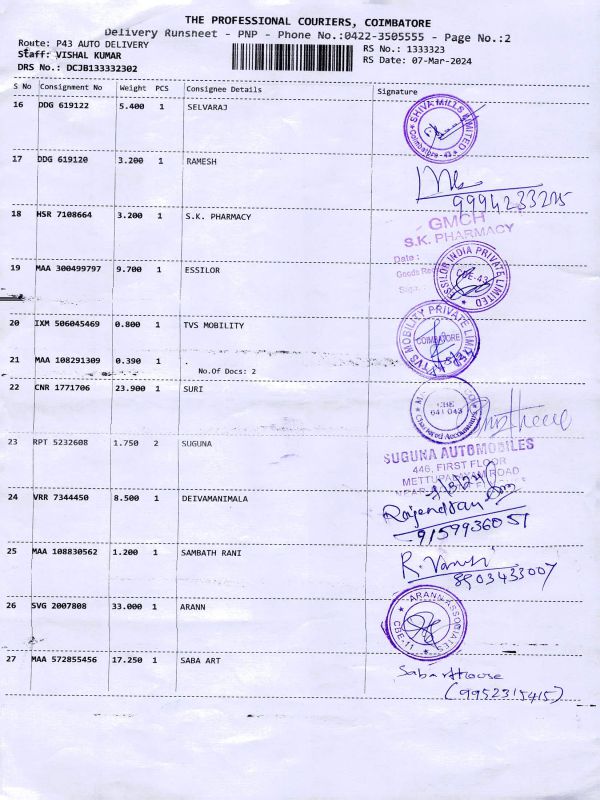 THE PROFESSIONAL COURIERS, COIMBATORE
Delivery Runsheet - PNP - Phone No.:0422-3505555 - Page No.:2
Route: P43 AUTO DELIVERY
RS No.: 1333323
Staff: VISHAL KUMAR
RS Date: 07-Mar-2024
DRS No.: DCJB133332302
S No Consignment No Weight PCS Consignee Details Signature
16 DDG 619122 5.400 1 SELVARAJ
SHIVA MILLS LIMITED
Coimbatore - 43
17 DDG 619120 3.200 1 RAMESH
9994233205
18 HSR 7108664 3.200 1 S.K. PHARMACY
GMCH
S.K. PHARMACY
Date :
Goods Rec
19 MAA 300499797 9.700 1 ESSILOR
ESSILOR INDIA PRIVATE LIMITED
CBE-43
20 IXM 506045469 0.800 1 TVS MOBILITY
TVS MOBILITY PRIVATE LIMITED
COIMBATORE
21 MAA 108291309 0.390 1
No.Of Docs: 2
22 CNR 1771706 23.900 1 SURI
CBE
641 043
Chartered Accountants
23 RPT 5232608 1.750 2 SUGUNA
SUGUNA AUTOMOBILES
446, FIRST FLOOR
METTUPALAYAM ROAD
7/3/24
24 VRR 7344450 8.500 1 DEIVAMANIMALA
Rajendran
9159936051
25 MAA 108830562 1.200 1 SAMBATH RANI
R. Vansi
8903433007
26 SVG 2007808 33.000 1 ARANN
ARANN ASSOCIATES
CBE-11
27 MAA 572855456 17.250 1 SABA ART
Saba Art House
(9952315415)